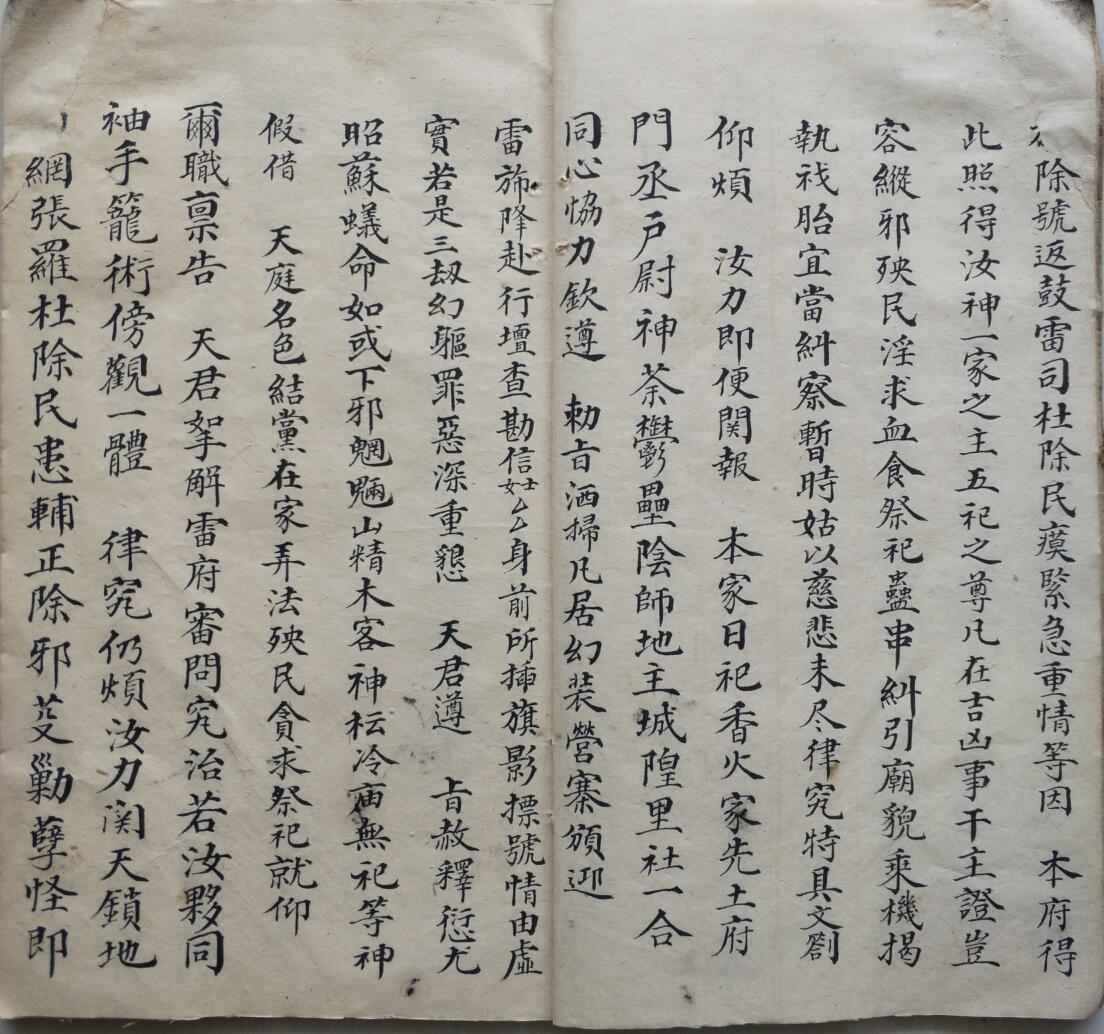 除號返鼓雷司杜除民瘼緊急重情等因 本府得
此照得汝神一家之主五祀之尊凡在吉凶事干主證豈
容縱邪殃民淫求血食祭祀蠱串糾引廟貌乘機揭
執戕胎宜當糾察暫時姑以慈悲未尽律究特具文劄
仰煩 汝力即便関報 本家日祀香火家先土府
門丞戶尉神荼鬱壘陰師地主城隍里社一合
同心恊力欽遵 勅旨洒掃凡居幻装營寨頒迎
雷斾降赴行壇查勘信士女厶身前所揷旗影摽號情由虛
實若是三刼幻軀罪惡深重懇 天君遵 旨赦釋愆尤
昭蘇蟻命如或下邪魍魎山精木客神枟冷庙無祀等神
假借 天庭名色結黨在家弄法殃民貪求祭祀就仰
爾職禀告 天君拏解雷府審問究治若汝夥同
袖手籠術傍觀一體 律究仍煩汝力関天鎖地
網張羅杜除民患輔正除邪芟勦孽怪即